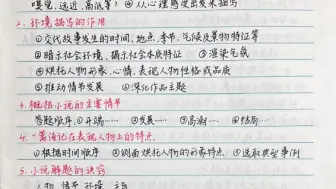 嗅觉，远近，高低等）④从心理感受出发来描写
2、环境描写的作用
①交代故事发生的时间、地点、季节，气候及景物特征等
②暗示社会环境，揭示社会本质特征 ③渲染气氛
④烘托人物形象、心情，表现人物性格或品质
⑤推动情节发展 ⑥深化作品主题
3、概括小说的主要情节
答题顺序，①开端……②发展……③高潮…… ④结局
4、"落后记在表现人物上的特点
①根据时间顺序 ②侧面烘托人物的形象特点 ③选取典型事例
5、小说解题的诀窍
人物 情节 环境 主旨